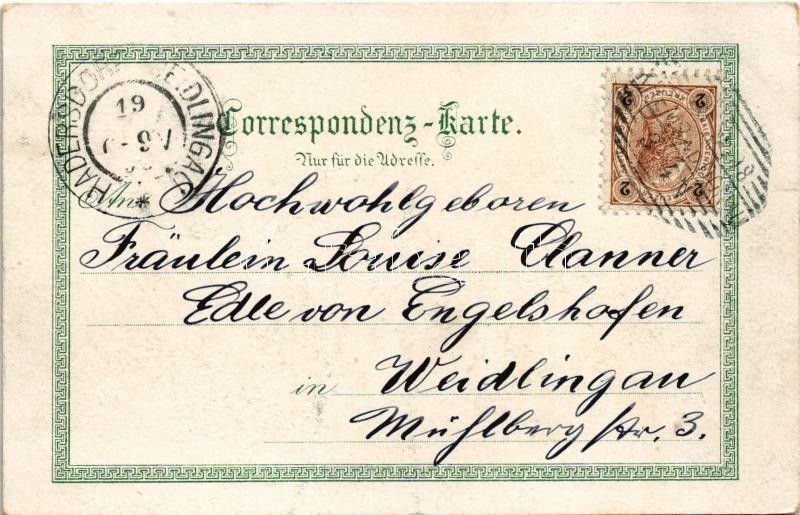 HADERSDORF-WEIDLINGAU
19
Correspondenz-Karte.
Nur für die Adresse.
2 2
2 2
An Hochwohlgeboren
Fräulein Louise Clanner
Edle von Engelshofen
in Weidlingau
Mühlberg str. 3.